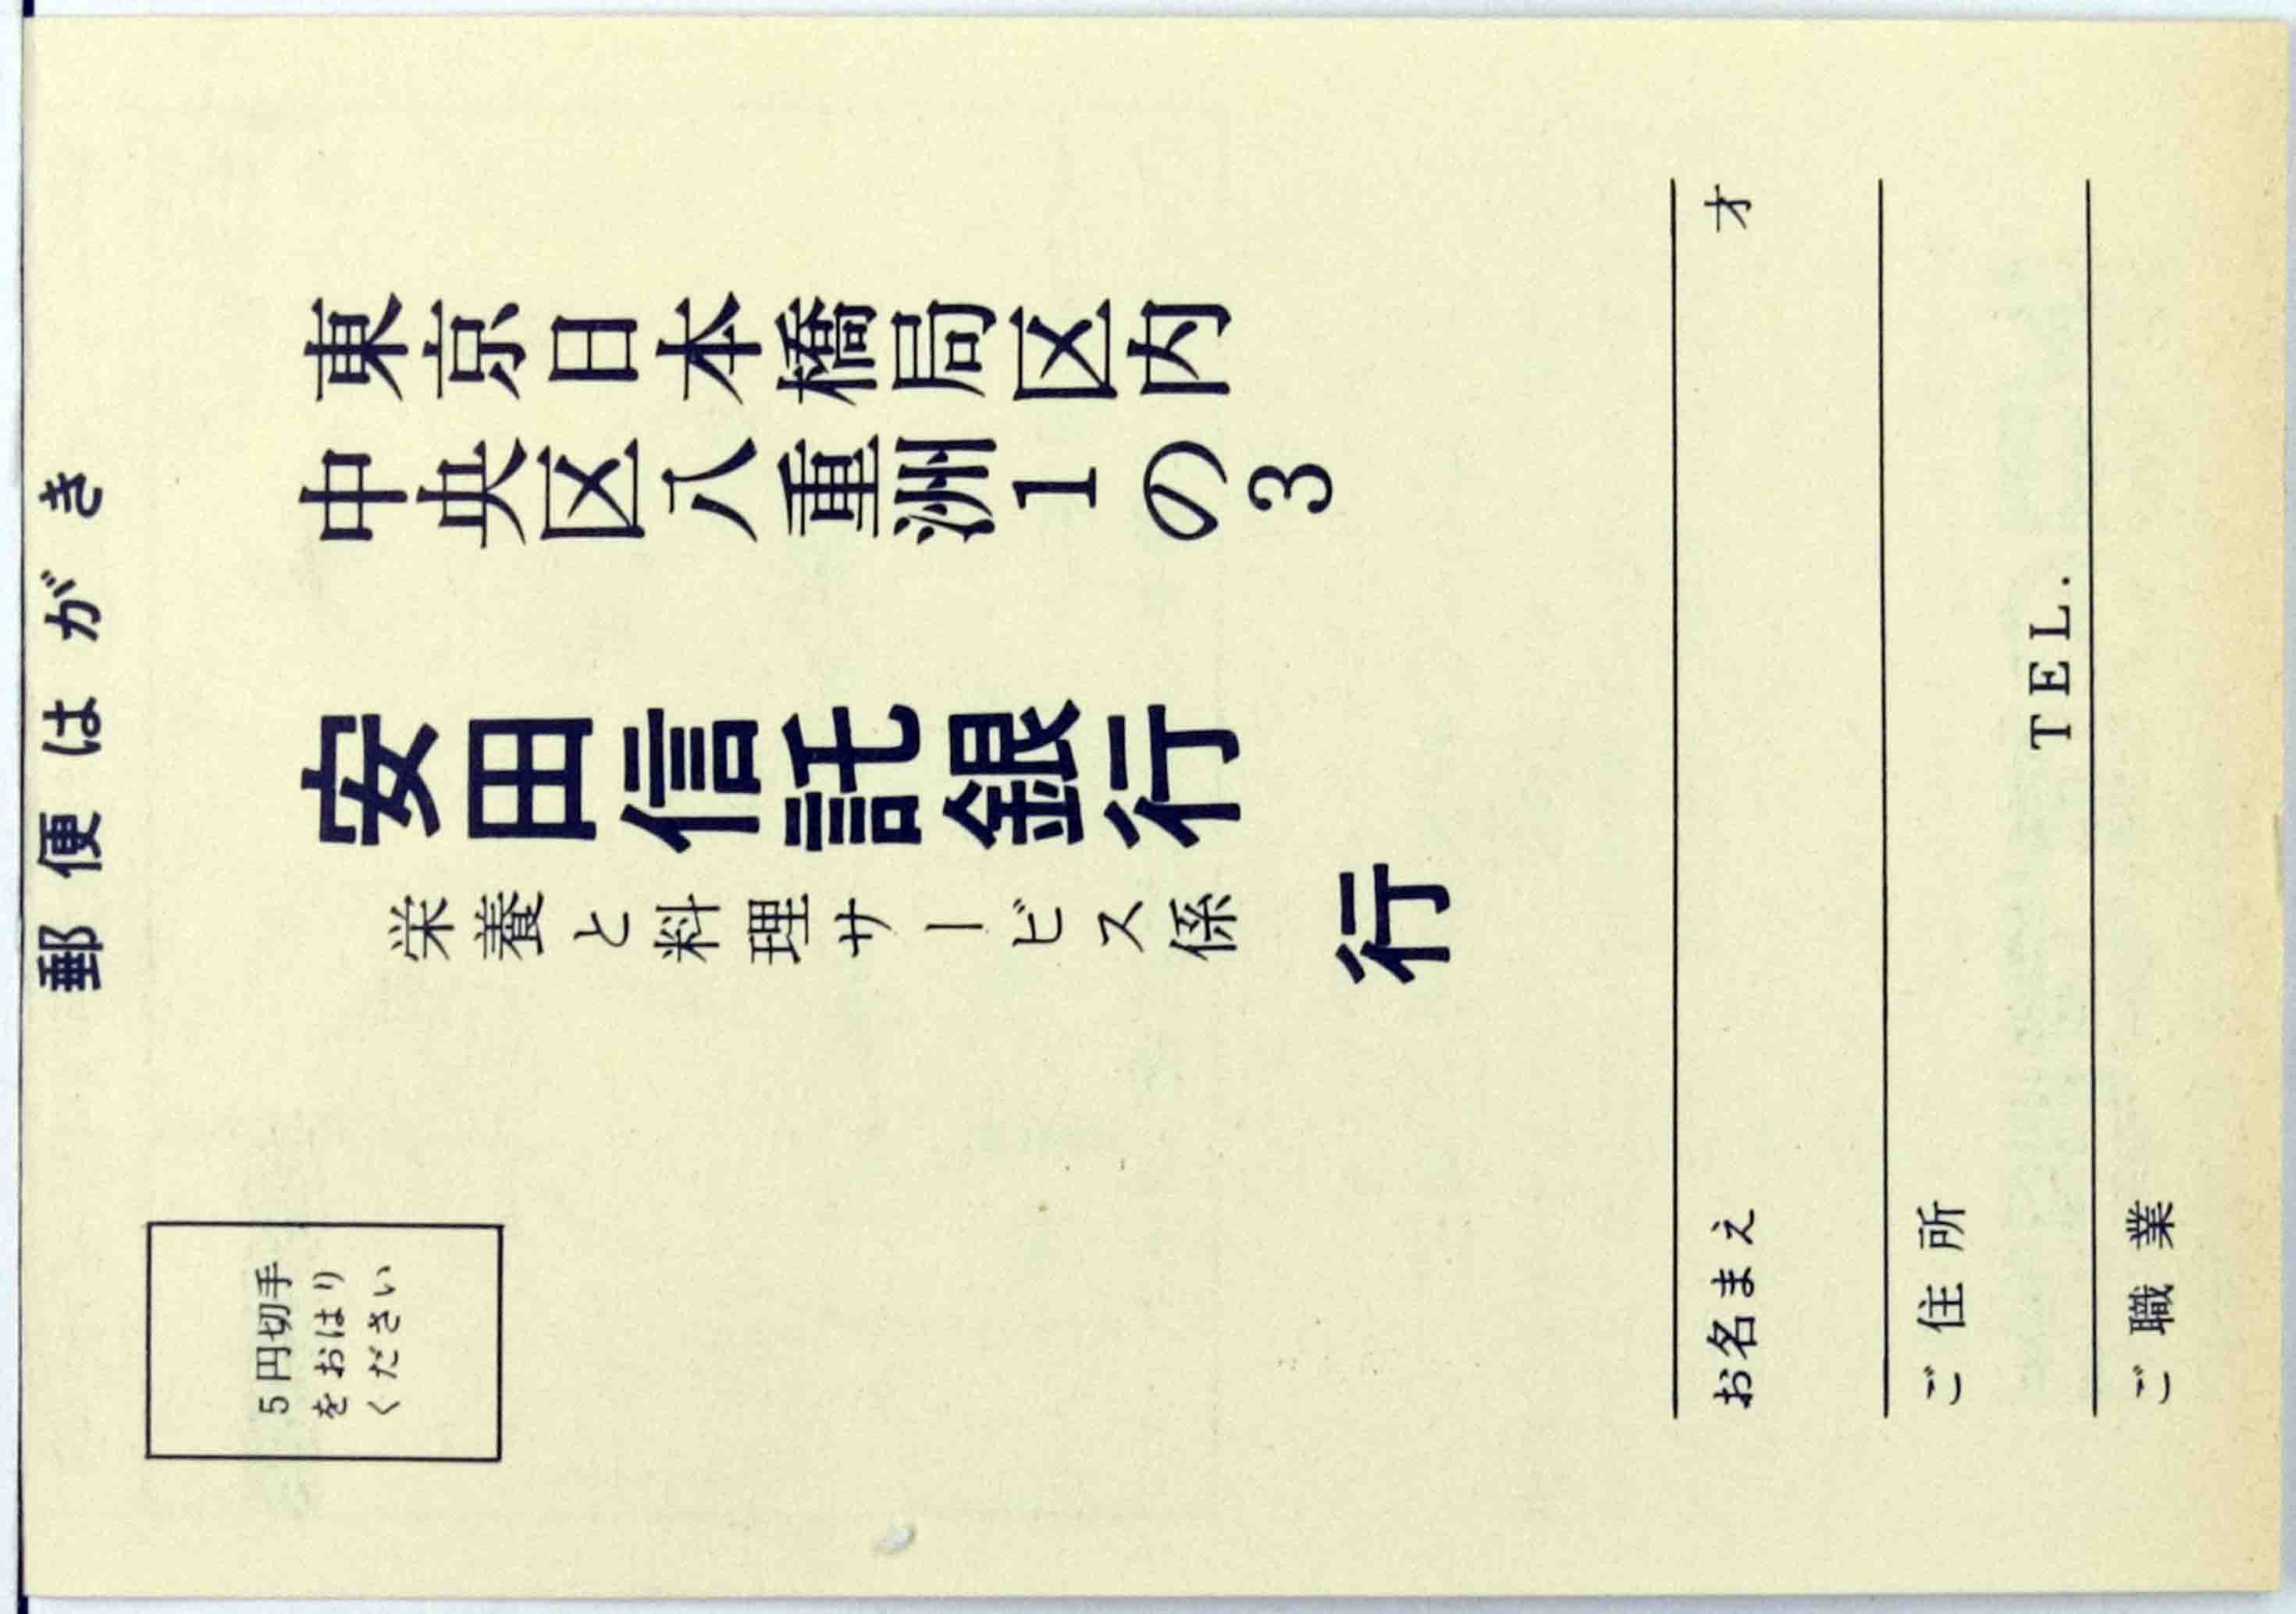 郵便はがき
5円切手
をおはり
ください
東京日本橋局区内
中央区八重洲1の3
安田信託銀行
栄養と料理サービス係
行
お名まえ 才
ご住所
TEL.
ご職業